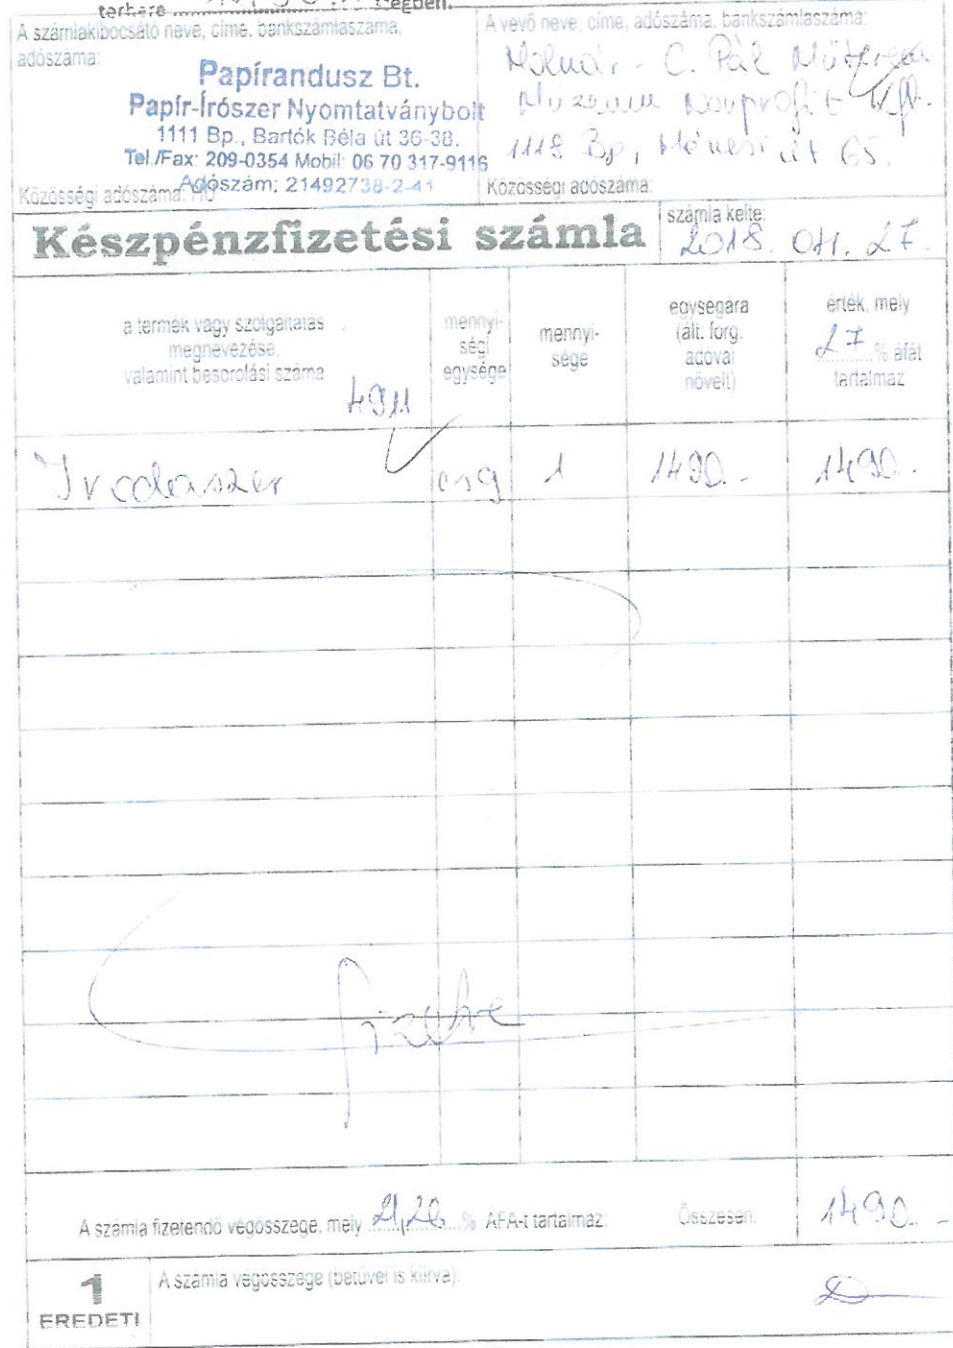 terhére ségben.
A számlakibocsátó neve, címe, bankszámlaszáma,
adószáma:
Papírandusz Bt.
Papír-Írószer Nyomtatványbolt
1111 Bp., Bartók Béla út 36-38.
Tel./Fax: 209-0354 Mobil: 06 70 317-9116
Adószám: 21492738-2-41
Közösségi adószáma: HU
A vevő neve, címe, adószáma, bankszámlaszáma:
Molnár - C. Pál Műterem
Múzeum Nonprofit Kft.
1118 Bp, Ménesi út 65.
Közösségi adószáma:
Készpénzfizetési számla
számla kelte:
2018. 04. 27.
a termék vagy szolgáltatás
megnevezése,
valamint besorolási száma
mennyi-
ségi
egysége
mennyi-
sége
egységára
(ált. forg.
adóval
növelt)
érték, mely
27 % áfát
tartalmaz
Irodaszer csg 1 1490.- 1490.-
fizetve
A számla fizetendő végösszege, mely 21,26 % ÁFA-t tartalmaz: Összesen: 1490.-
1
EREDETI
A számla végösszege (betűvel is kiírva):